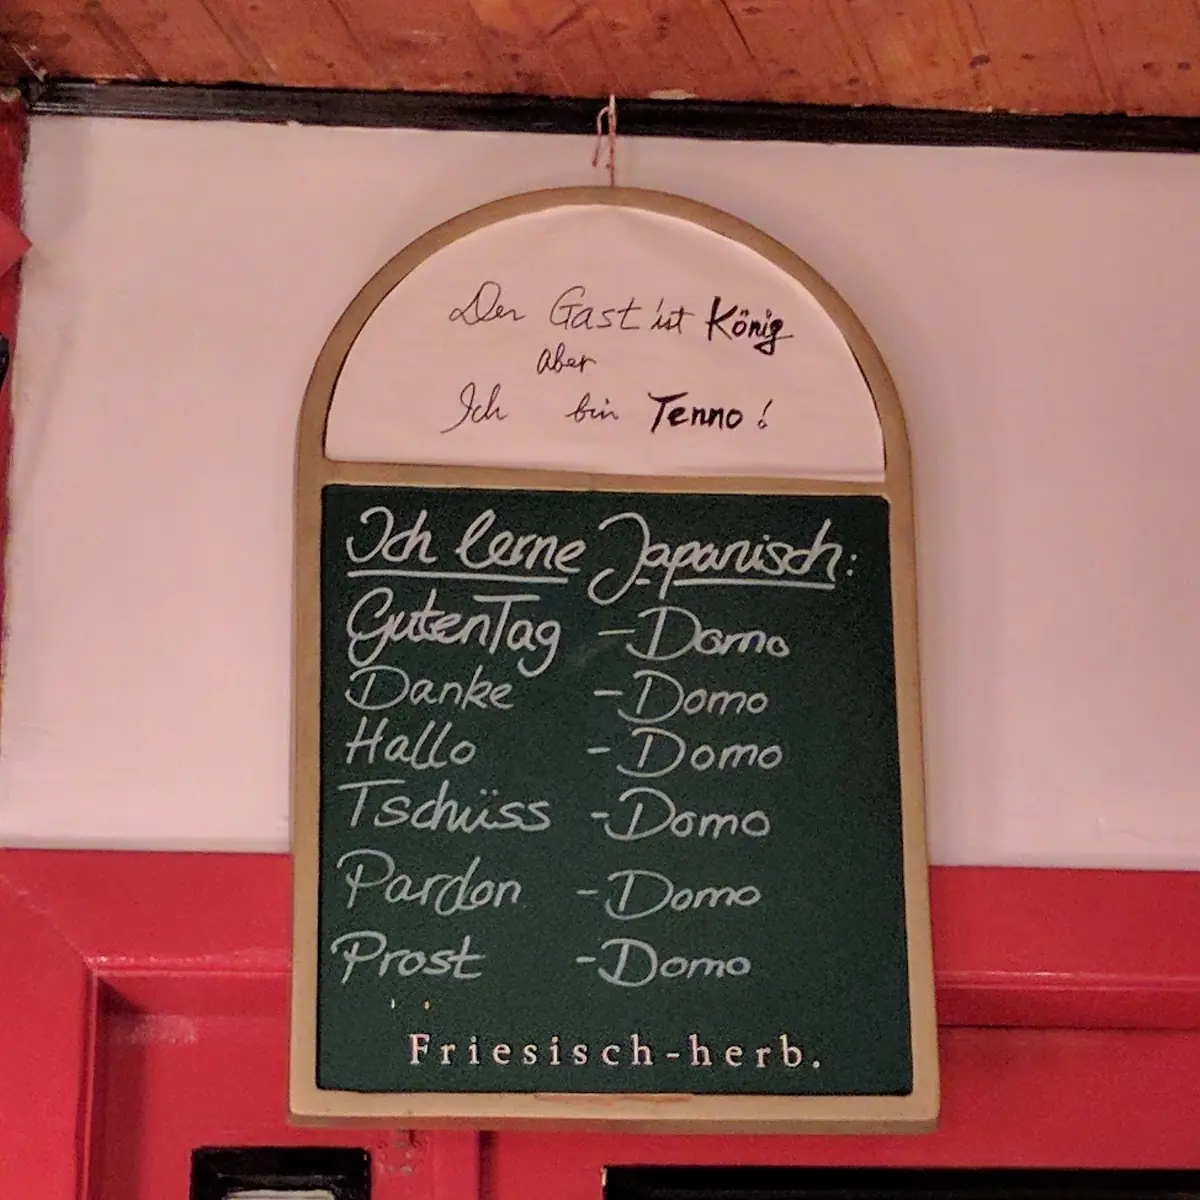 Der Gast ist König
aber
Ich bin Tenno!
Ich lerne Japanisch:
Guten Tag - Domo
Danke - Domo
Hallo - Domo
Tschüss - Domo
Pardon - Domo
Prost - Domo
Friesisch-herb.